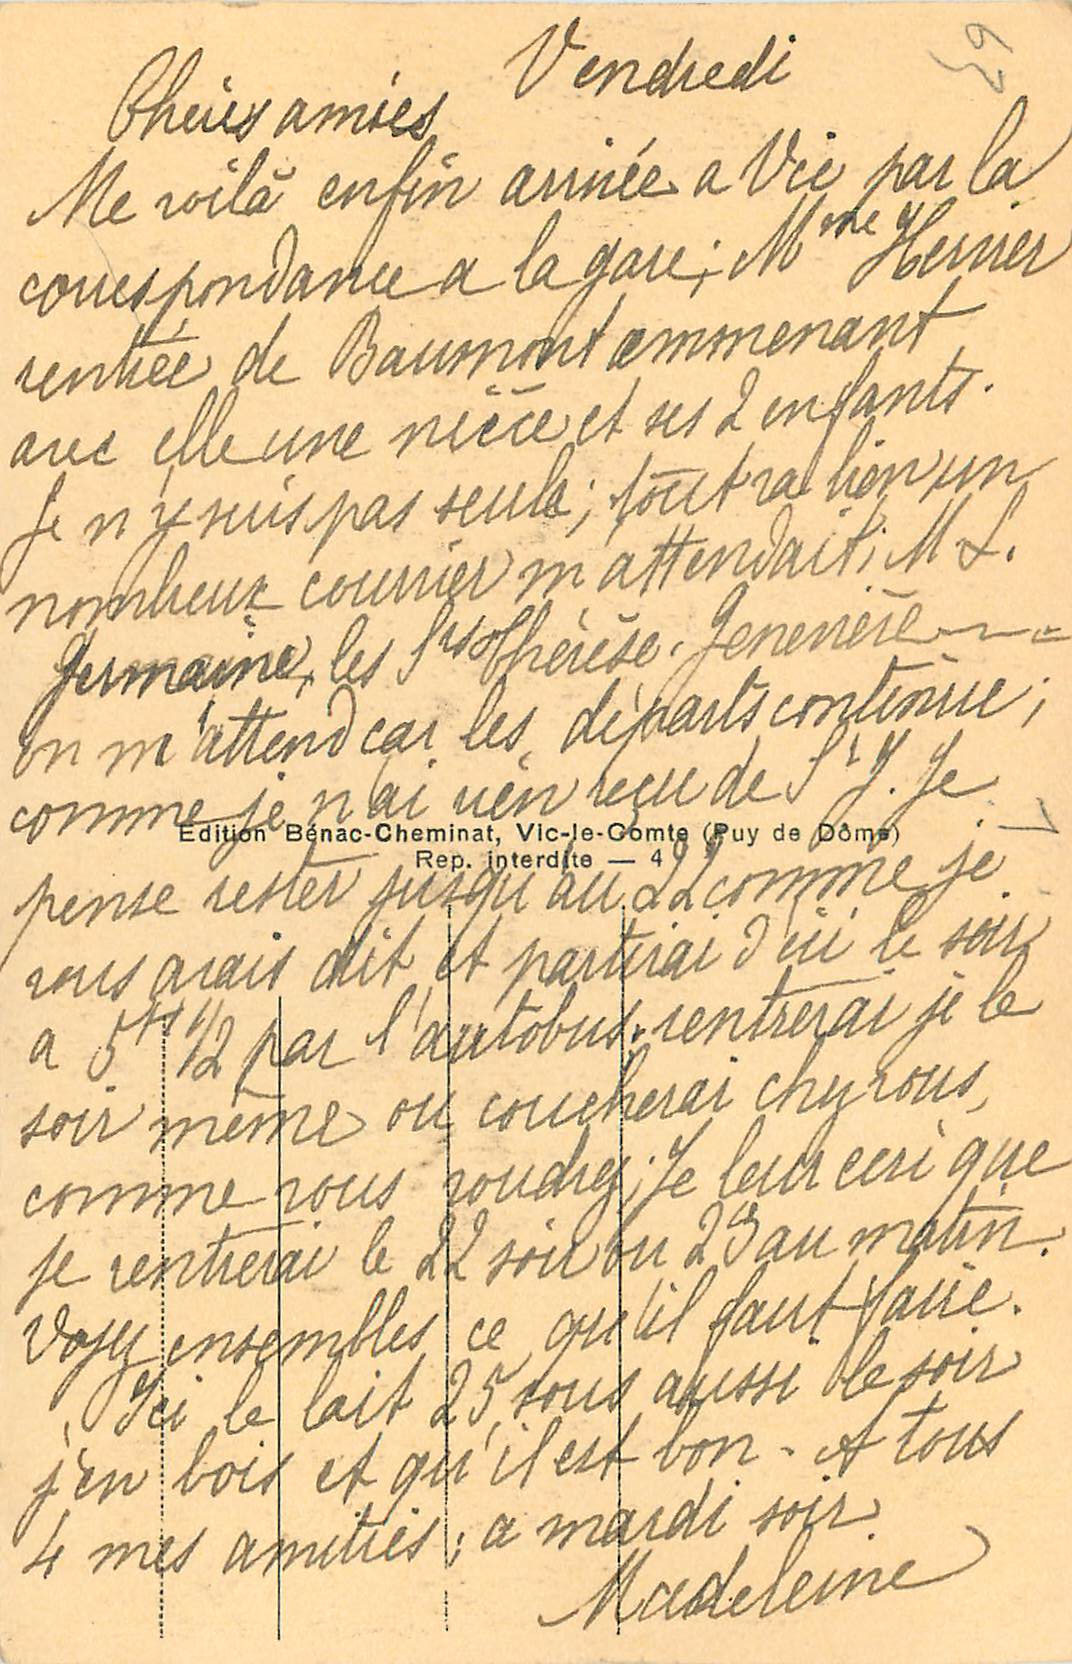 Vendredi
Chères amies
Me voilà enfin arrivée a Vic par la
correspondance a la gare; Mme Herrier
rentrée de Baumont emmenant
avec elle une nièce et ses 2 enfants.
Je n'y suis pas seule; tout va bien un
nombreux courrier m'attendait; M L.
Germaine, les Srs Thérèse. Geneviève
on m'attend car les départs continue;
comme je n'ai rien reçu de Sr J. Je
Edition Bénac-Cheminat, Vic-le-Comte (Puy de Dôme)
Rep. interdite — 4
pense rester jusqu'au 22 comme je
vous avais dit et partirai d'ici le soir
a 5H 1/2 par l'autobus. rentrerai je le
soir même ou coucherai chez vous,
comme vous voudrez; Je leur ecri que
je rentrerai le 22 soir ou 23 au matin.
Voyez ensembles ce qu'il faut faire.
Ici le lait 25 sous aussi le soir
j'en bois et qu'il est bon - A tous
4 mes amitiés; a mardi soir
Madeleine